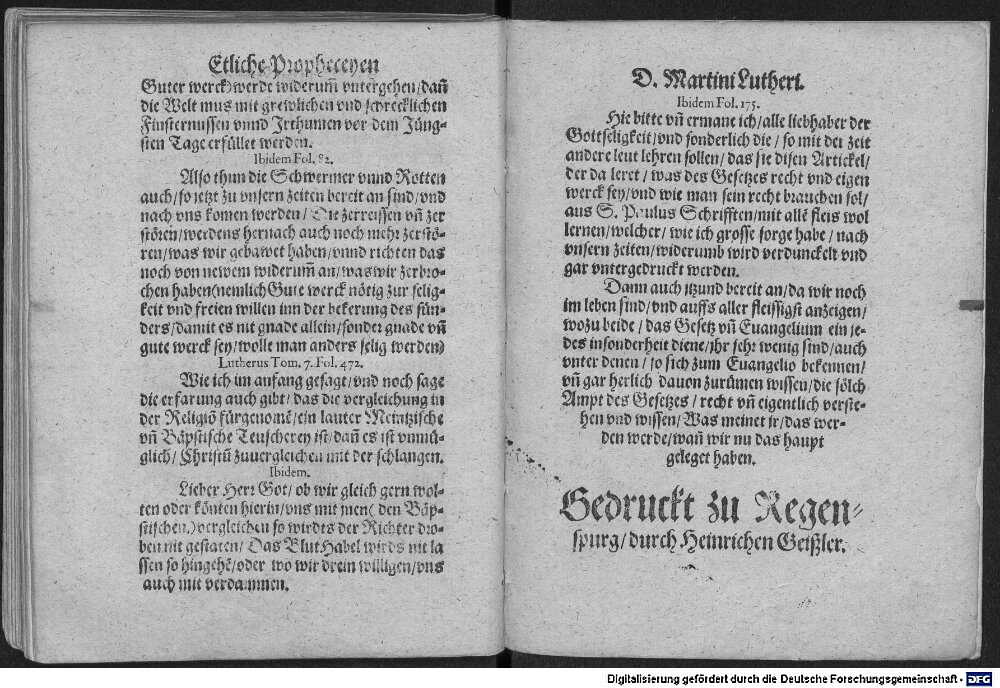 Etliche Propheceyen
Guter werck) werde widerum̃ vntergehen/ dañ
die Welt mus mit grewlichen vnd schrecklichen
Finsternussen vnnd Irthumen vor dem Jüng-
sten Tage erfüllet werden.
Ibidem Fol. 82.
Also thun die Schwermer vnnd Rotten
auch/ so jetzt zu vnsern zeiten bereit an sind/ vnd
nach vns komen werden/ Die zerreissen vñ zer
stören/ werdens hernach auch noch mehr zerstö-
ren/ was wir gebawet haben/ vnnd richten das
noch von newem widerum̃ an/ was wir zerbro-
chen haben (nemlich Gute werck nötig zur selig-
keit vnd freien willen inn der bekerung des sün-
ders/ damit es nit gnade allein/ sonder gnade vñ
gute werck sey/ wolle man anders selig werden)
Lutherus Tom. 7. Fol. 472.
Wie ich im anfang gesagt/ vnd noch sage
die erfarung auch gibt/ das die vergleichung in
der Religiõ fürgenomẽ/ ein lauter Meintzische
vñ Bäpstische Teuscherey ist/ dañ es ist vnmü-
glich/ Christũ zuuergleichen mit der schlangen.
Ibidem.
Lieber Herr Got/ ob wir gleich gern wol-
ten oder könten hierin/ vns mit jnen ( den Bäp-
stischen.) vergleichen so wirdts der Richter dro-
ben nit gestaten/ Das Blut Habel wirds nit la
ssen so hingehẽ/ oder wo wir drein willigen/ vns
auch mit verdammen.
D. Martini Lutheri.
Ibidem Fol. 175.
Hie bitte vñ ermane ich/ alle liebhaber der
Gottseligkeit/ vnd sonderlich die/ so mit der zeit
andere leut lehren sollen/ das sie disen Artickel/
der da leret/ was des Gesetzes recht vnd eigen
werck sey/ vnd wie man sein recht brauchen sol/
aus S. Paulus Schrifften/ mit allẽ fleis wol
lernen/ welcher/ wie ich grosse sorge habe/ nach
vnsern zeiten/ widerumb wird verdunckelt vnd
gar vntergedruckt werden.
Dann auch jtzund bereit an/ da wir noch
im leben sind/ vnd auffs aller fleissigst anzeigen/
wozu beide/ das Gesetz vñ Euangelium ein je-
des insonderheit diene/ jhr sehr wenig sind/ auch
vnter denen/ so sich zum Euangelio bekennen/
vñ gar herlich dauon zurümen wissen/ die sölch
Ampt des Gesetzes/ recht vñ eigentlich verste-
hen vnd wissen/ Was meinet ir/ das wer-
den werde/ wañ wir nu das haupt
geleget haben.
Gedruckt zu Regen-
spurg/ durch Heinrichen Geißler.
Digitalisierung gefördert durch die Deutsche Forschungsgemeinschaft - DFG